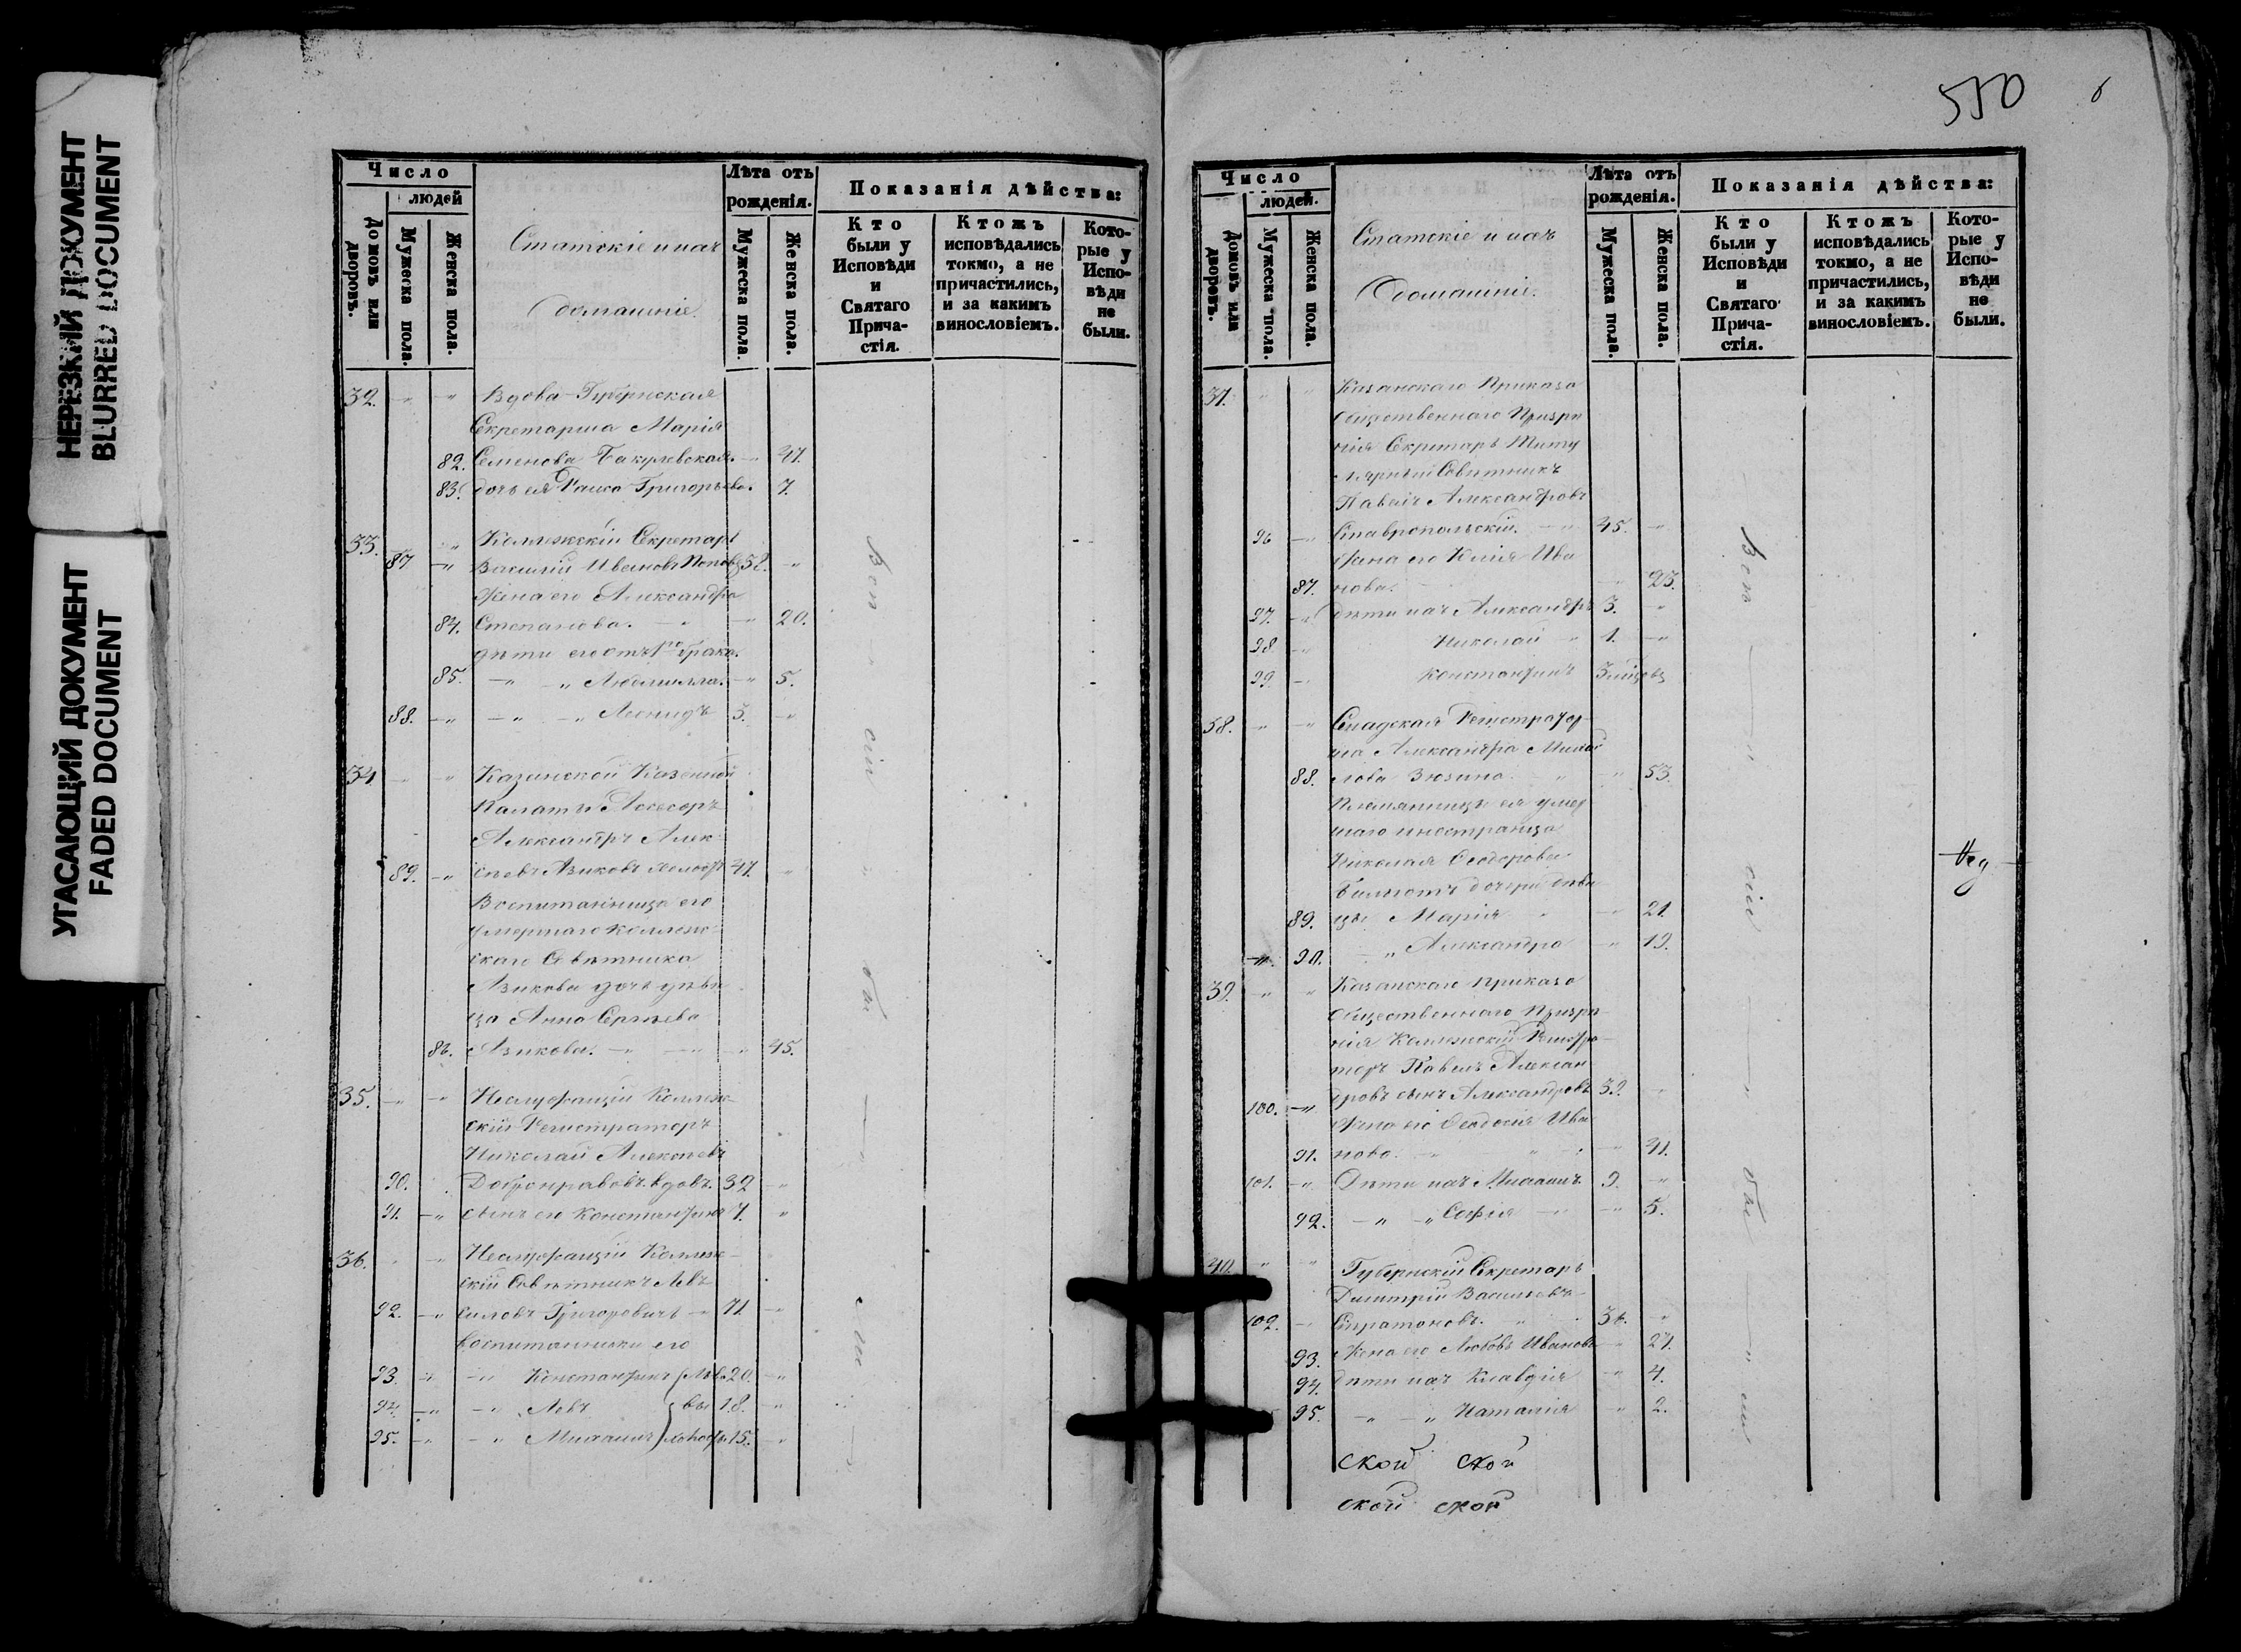 НЕРЕЗКИЙ ДОКУМЕНТ
BLURRED DOCUMENT
УГАСАЮЩИЙ ДОКУМЕНТ
FADED DOCUMENT
Число
людей
Домовъ или дворовъ.
Мужеска пола.
Женска пола.
Статскіе и ихъ
домашніе.
Лѣта отъ рожденія.
Мужеска пола.
Женска пола.
Показанія дѣйства:
Кто были у Исповѣди и Святаго Прича-стія.
Ктожъ исповѣдались токмо, а не причастились, и за какимъ винословіемъ.
Кото-рые у Испо-вѣди не были.
32. Вдова Губернская
Секретарша Марія
82. Семенова 47.
83. дочь ея Раиса Григорьева. 7.
33. Коллежскій Секретарь
87 Василій Ивановъ Поповъ 32.
Жена его Александра
84. Степанова. 20.
дѣти его отъ 1го брака.
85. Людмилла. 5.
88. Леонидъ 3.
34 Казанской Казенной
Палаты Ассесоръ
Александръ Алек
89. 41.
Воспитанница его
умершаго Коллеж-
скаго Совѣтника
дочь дѣви
ца Анна Сергѣева
86. 45.
35. Неслужащій Коллеж-
скій Регистраторъ
Николай Алексѣевъ
90. Добронравовъ вдовъ. 32
91. сынъ его Константинъ 7.
36. Неслужащій Коллеж-
скій Совѣтникъ Левъ
92. Силовъ Григоровичъ 71.
воспитанники его
93. Константинъ 20.
94. Левъ вы 18.
95. Михаилъ 15.
Вси
сіи
были
550
6
Число
людей.
Домовъ или дворовъ.
Мужеска пола.
Женска пола.
Статскіе и ихъ
домашніе.
Лѣта отъ рожденія.
Мужеска пола.
Женска пола.
Показанія дѣйства:
Кто были у Исповѣди и Святаго Прича-стія.
Ктожъ исповѣдались токмо, а не причастились, и за какимъ винословіемъ.
Кото-рые у Испо-вѣди не были.
37. Казанскаго Приказа
Общественнаго Призрѣ
нія Секретарь Титу
лярный Совѣтникъ
Павелъ Александровъ
96 Ставропольскій. 45.
Жена его Юлія Ива
87. нова. 23.
97. дѣти ихъ Александръ 3.
98 Николай 1.
99. Константинъ
38. Сенатская Регистратор-
ша Александра Михай
88. лова Зюзина 53.
Племянницы ея умер
шаго иностранца
Николая Ѳеодорова
дочери дѣви
89. цы Марія 21.
90. Александра 19.
39. Казанскаго Приказа
Общественнаго Призрѣ
нія Коллежскій Регистра-
торъ Павелъ Алексан
100. дровъ сынъ Александровъ 52.
Жена его Ѳеодосія Ива
91. нова. 41.
101. Дѣти ихъ Михаилъ 9.
92. Софія 5.
40. Губернскій Секретарь
Димитрій Васильевъ
102. 36.
93. Жена его Любовь Иванова 27.
94. дѣти ихъ Клавдія 4.
95. Наталія 2.
ской ской
ской ской
Вси
сіи
бы
ли